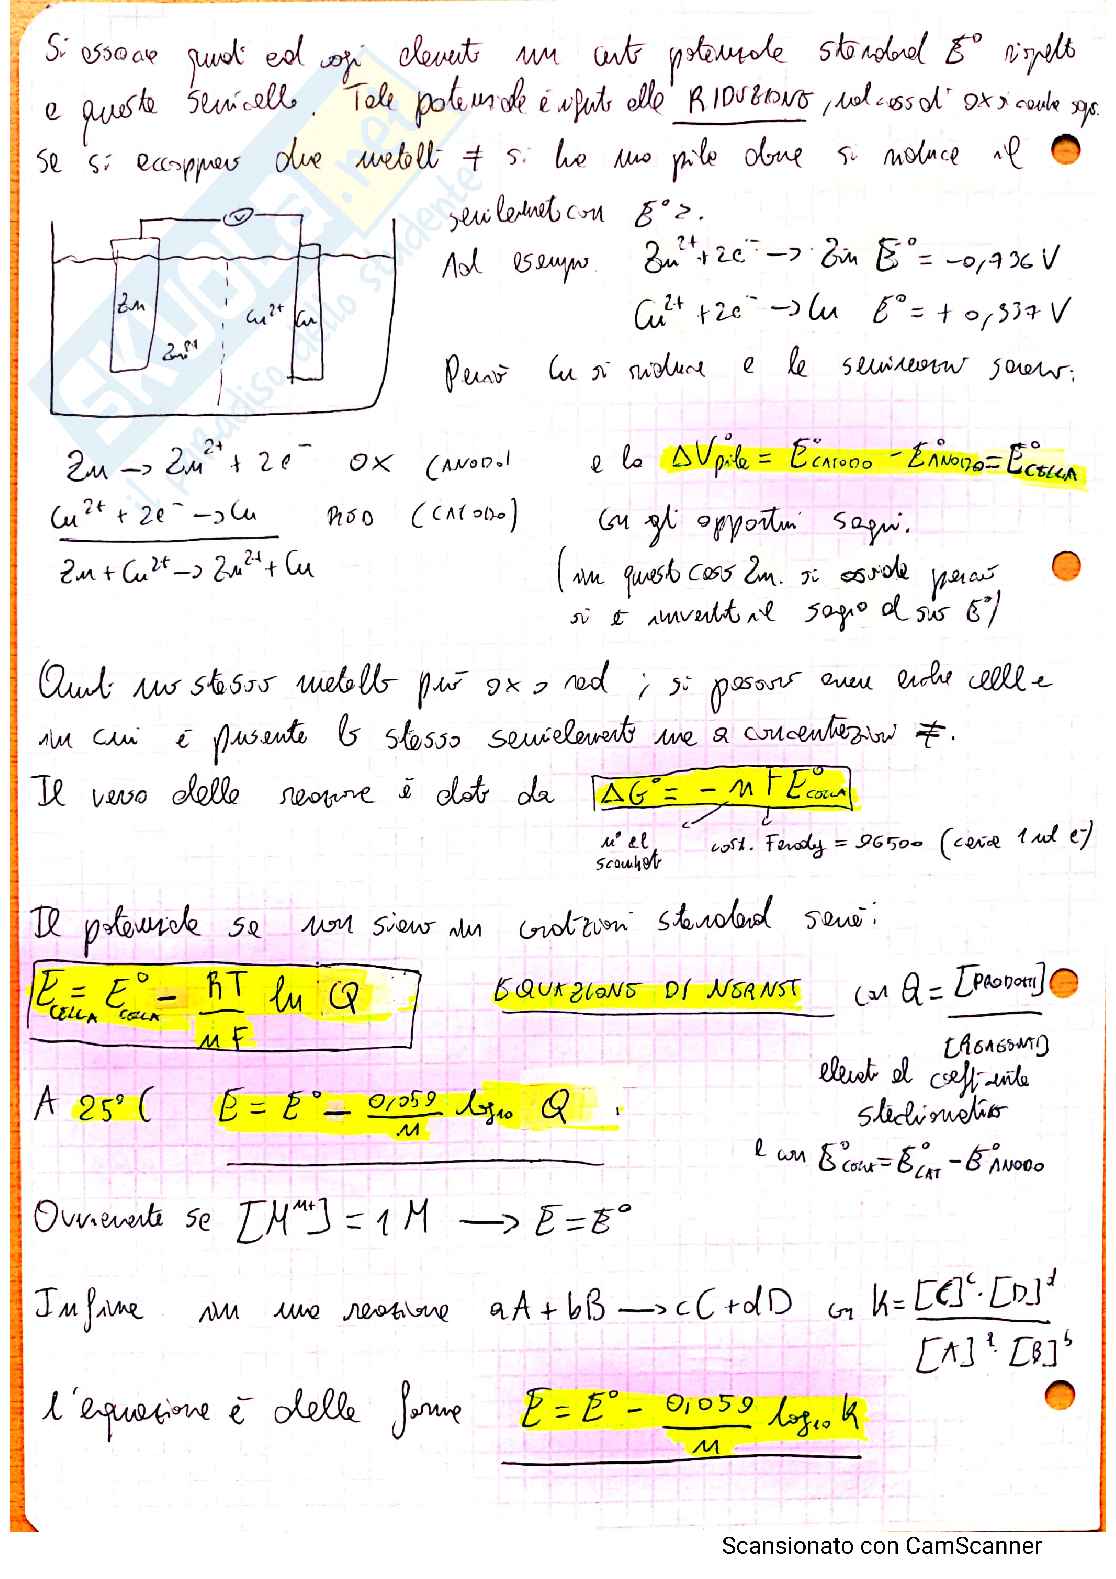 Si associa quindi ad ogni elemento un certo potenziale standard E° rispetto
a questa semicella. Tale potenziale è riferito alla RIDUZIONE, nel caso di ox si cambia segno.
Se si accoppiano due metalli ≠ si ha una pila dove si riduce il
semielemento con E° >.
Ad esempio Zn²⁺ + 2e⁻ → Zn E° = -0,736 V
Cu²⁺ + 2e⁻ → Cu E° = +0,337 V
Perciò Cu si riduce e le semireazioni saranno:
V
Zn Zn²⁺ Cu²⁺ Cu
Zn → Zn²⁺ + 2e⁻ OX (ANODO)
Cu²⁺ + 2e⁻ → Cu RED (CATODO)
Zn + Cu²⁺ → Zn²⁺ + Cu
e la ΔV°pila = E°CATODO - E°ANODO = E°CELLA
con gli opportuni segni.
(in questo caso Zn si ossida perciò
si è invertito il segno del suo E°)
Quindi uno stesso metallo può ox o red ; si possono avere anche celle
in cui è presente lo stesso semielemento ma a concentrazioni ≠.
Il verso della reazione è dato da ΔG° = - n F E°CELLA
n° el. scambiati
cost. Faraday = 96500 (carica 1 mol e⁻)
Il potenziale se non siamo in condizioni standard sarà:
E CELLA = E° CELLA - RT/nF ln Q
EQUAZIONE DI NERNST con Q = [PRODOTTI]/[REAGENTI]
elevati al coefficiente
stechiometrico
A 25°C E = E° - 0,059/n log₁₀ Q.
e con E°CELLA = E°CAT - E°ANODO
Ovviamente se [Mⁿ⁺] = 1 M → E = E°
Infine in una reazione aA + bB → cC + dD con K = [C]ᶜ · [D]ᵈ / [A]ᵃ · [B]ᵇ
l'equazione è della forma E = E° - 0,059/n log₁₀ K
SKUOLA.net
il paradiso dello studente
Scansionato con CamScanner